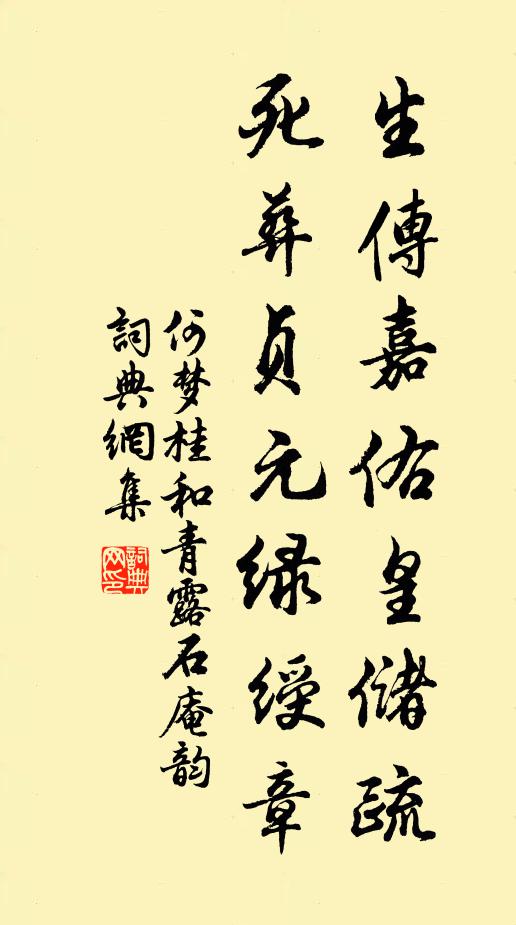 生傳嘉佑皇儲疏
死葬貞元綠綬章
何梦桂和青露石庵韵
詞典網集
詞典網印